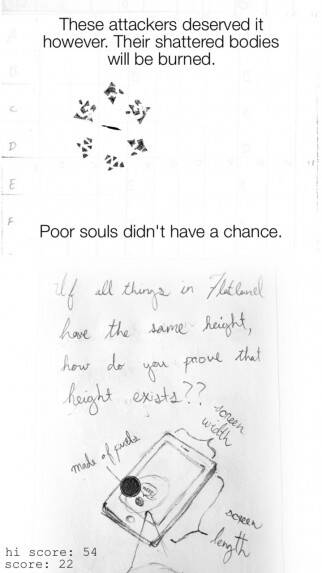 These attackers deserved it
however. Their shattered bodies
will be burned.
C
D
E
F
Poor souls didn't have a chance.
If all things in Flatland
have the same height,
how do you prove that
height exists??
screen
width
made of pixels
screen
length
hi score: 54
score: 22